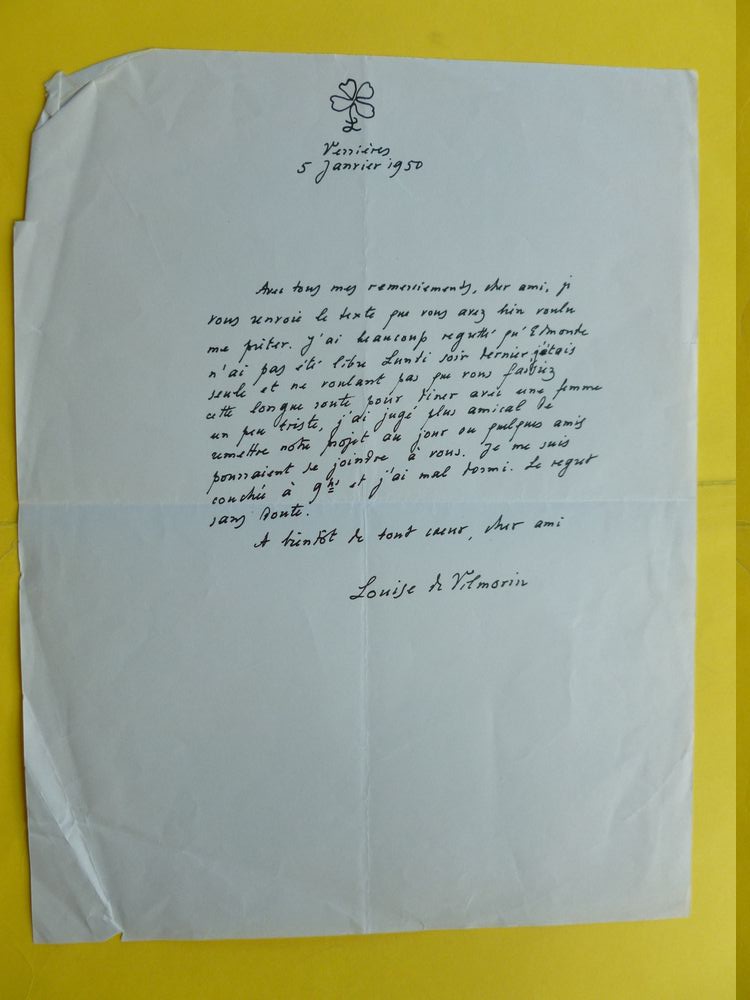 L
Verrières
5 Janvier 1950
Avec tous mes remerciements, cher ami, je
vous renvoie le texte que vous avez bien voulu
me prêter. J'ai beaucoup regretté qu'Edmonde
n'ai pas été libre Lundi soir dernier j'étais
seule et ne voulant pas que vous fassiez
cette longue route pour diner avec une femme
un peu triste, j'ai jugé plus amical de
remettre notre projet au jour ou quelques amis
pourraient se joindre à vous. Je me suis
couchée à 9hs et j'ai mal dormi. Le regret
sans doute.
A bientôt de tout cœur, cher ami
Louise de Vilmorin